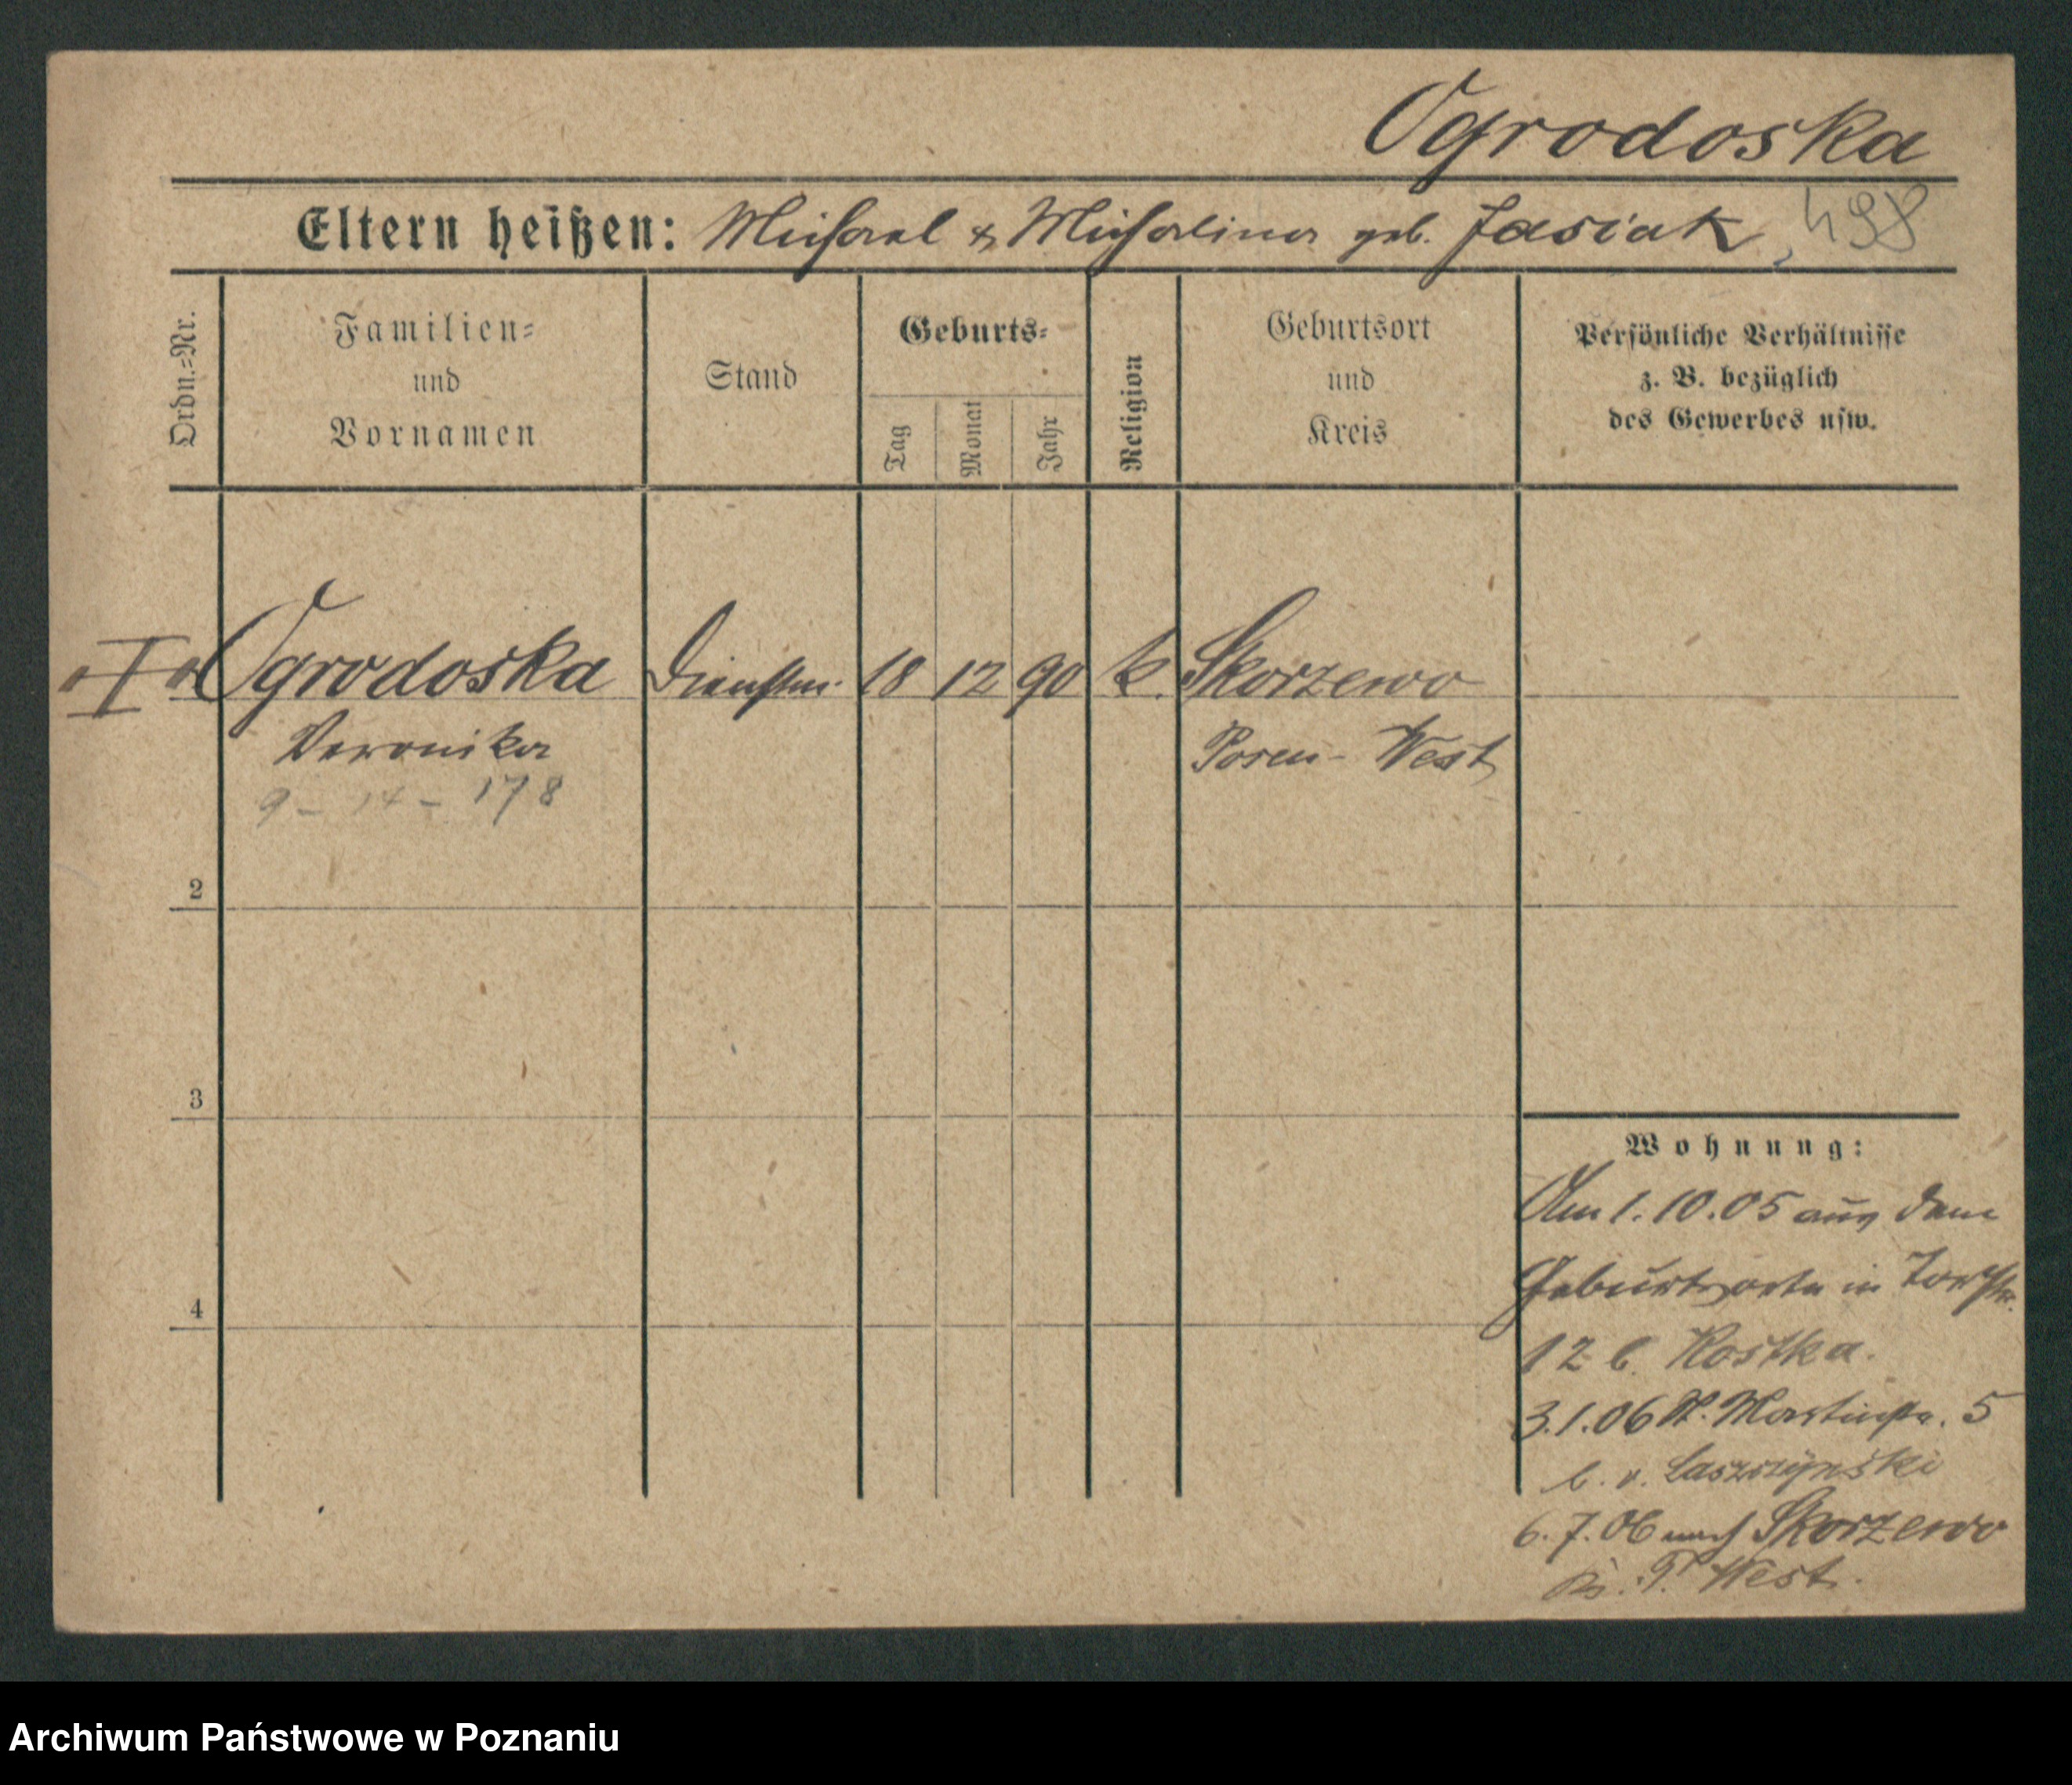 Ogrodoska
Eltern heißen: Michael & Michalina geb. Jasiak, 498
Ordn.=Nr.
Familien=
und
Vornamen
Stand
Geburts=
Tag
Monat
Jahr
Religion
Geburtsort
und
Kreis
Persönliche Verhältnisse
z. B. bezüglich
des Gewerbes usw.
I Ogrodoska Dienstm. 18 12 90 k. Skorzewo
Veronika Posen-West
9 - 14 - 178
2
3
4
Wohnung:
Am 1.10.05 aus dem
Geburtsorte in Torstr.
12 b. Kostka.
3.1.06 St. Martinstr. 5
b. v. Laszczynski
6.7.06 nach Skorzewo
Kr. P. West.
Archiwum Państwowe w Poznaniu